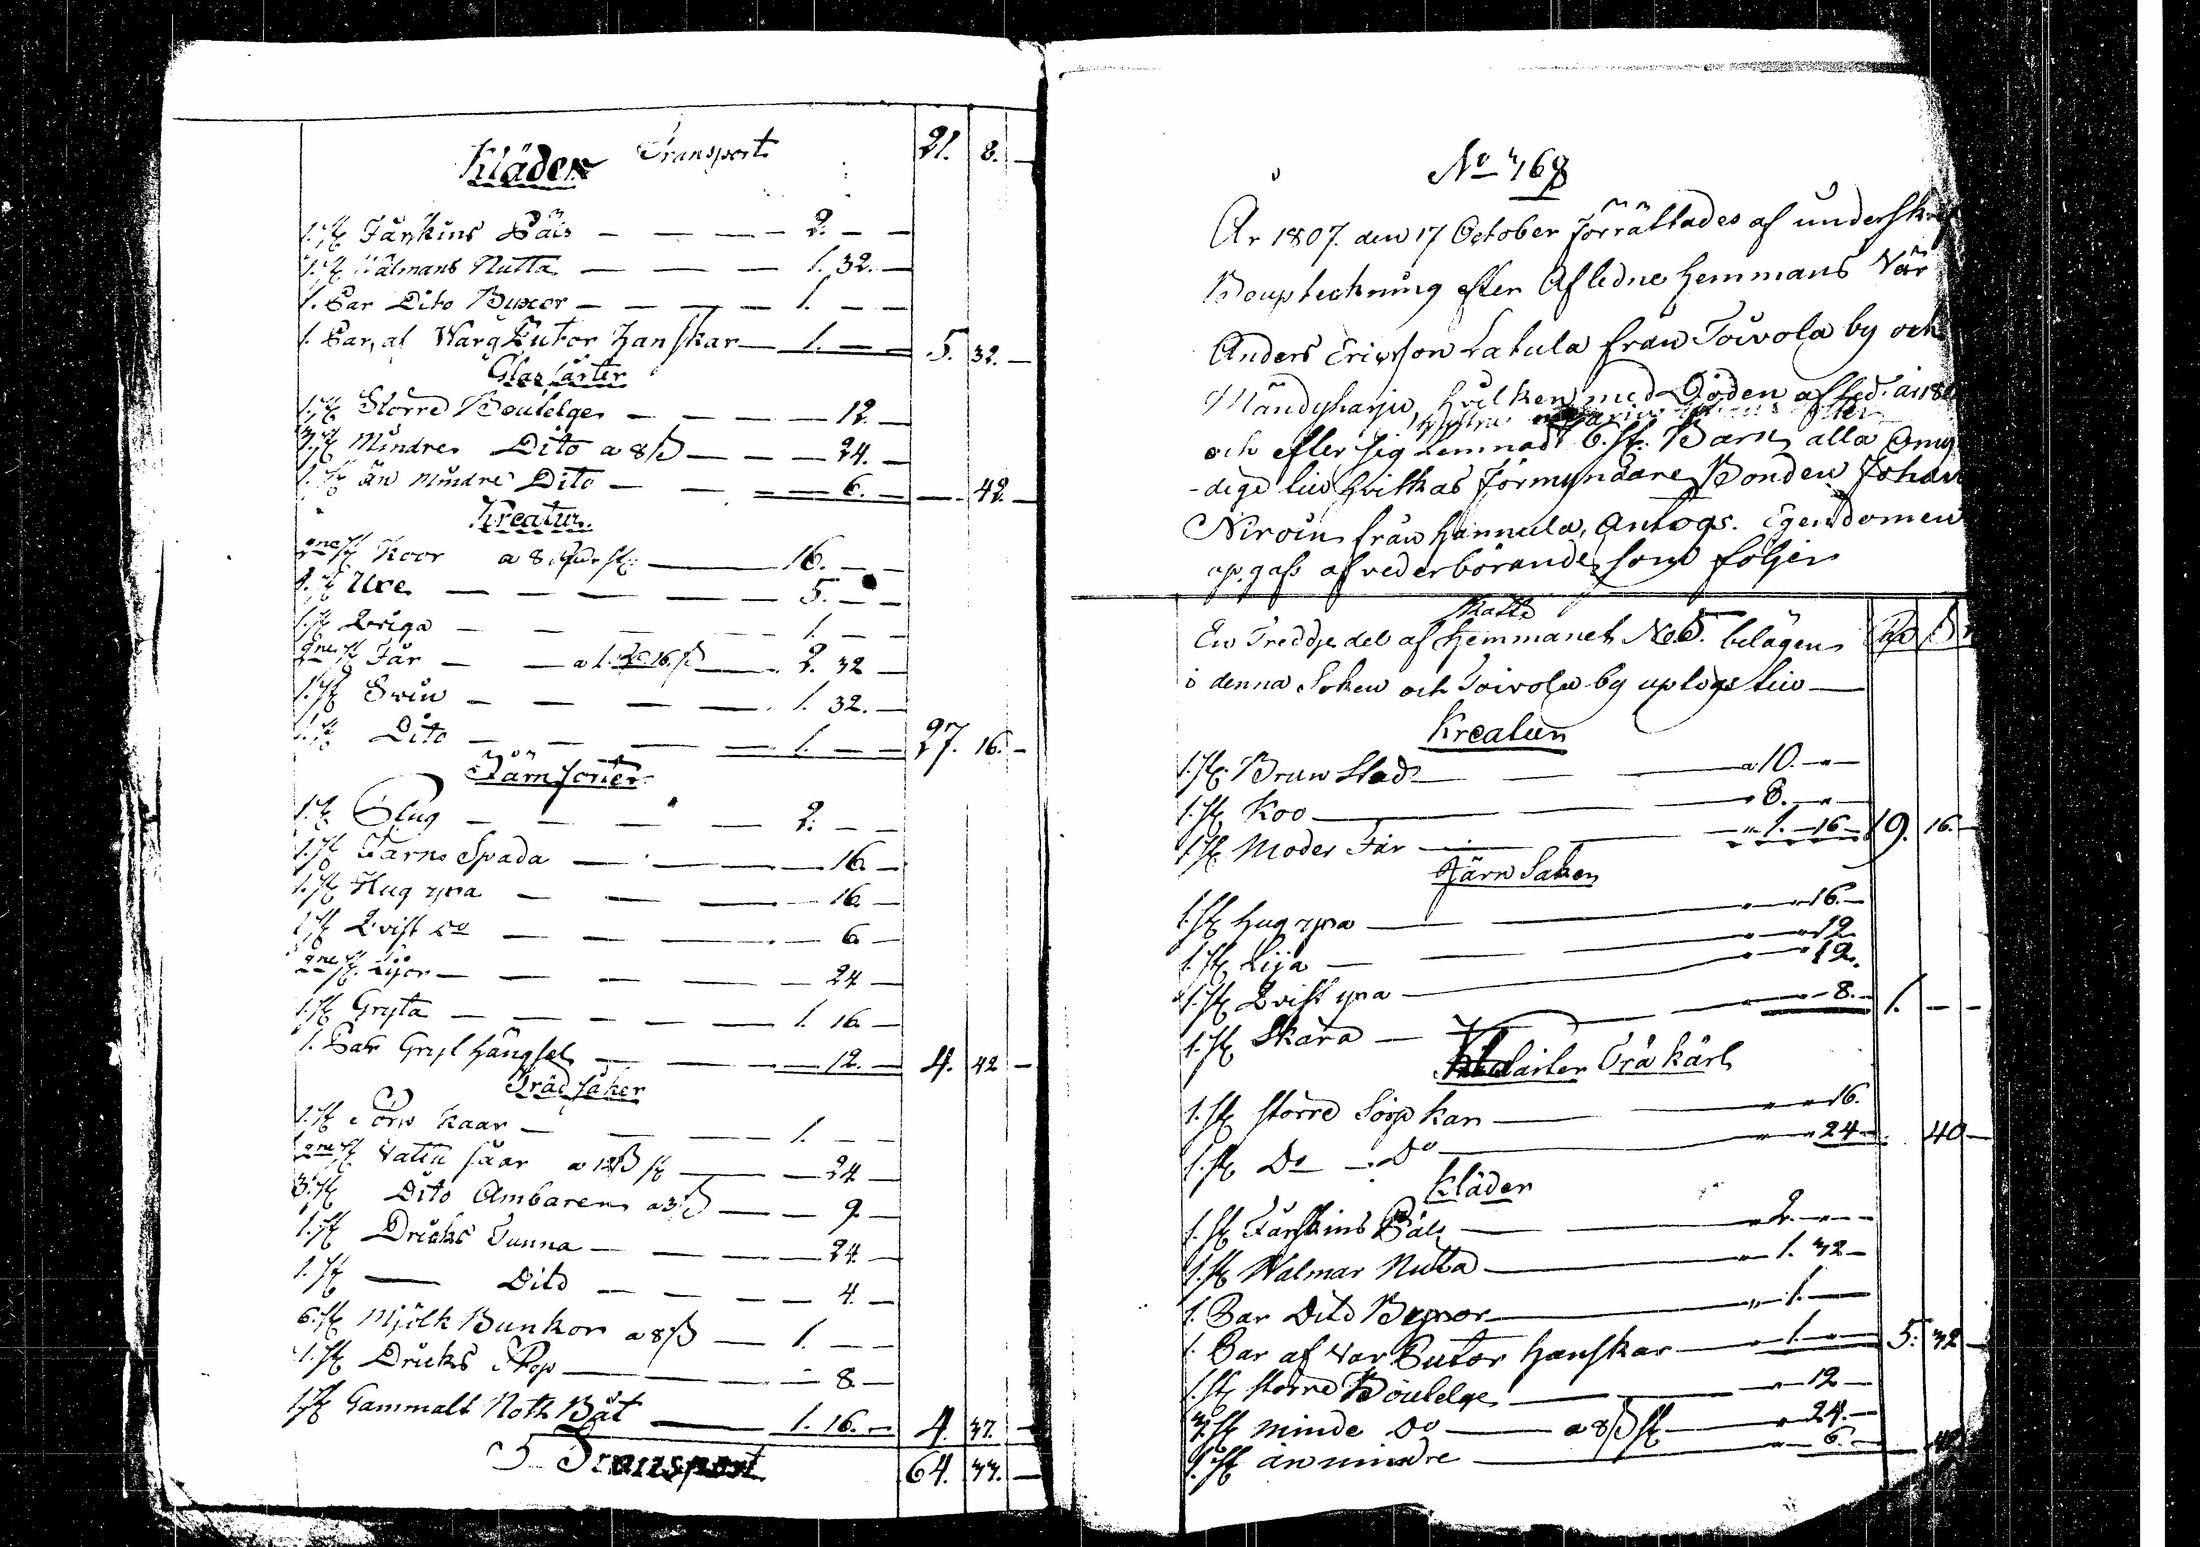 Transport 21. 8. —
Kläder
1. st Fårskins Päls — — — 2. — —
1. st Wålmans Nutta — — — 1. 32. —
1. Par Dito Buxor — — — 1. — —
1. Par, af Warg Futor Hanskar — 1. — — 5. 32. —
Glas sårter
1. st Större Boutelge — — — 12. —
3. st Mindre Dito a 8 ß — — — 24. —
1. st än mindre Dito — — — 6. — — 42. —
Kreatur
2ne st Koor a 8 Rdr st. — 16. — —
1. st Uxe — — — — 5. — —
1. st Qviga — — — — 1. — —
2ne st Får — — a 1. Rd. 16. ß — 2. 32 —
1. st Swin — — — — 1. 32. —
1. st Dito — — — — 1. — — 27. 16. —
Järn sorter
1. st Plug — — — — 2. — —
1. st Järns Spada — — — 16. —
1. st Hug yxa — — — 16. —
1. st Qvist Do — — — — 6. —
2ne st Lijor — — — — 24 —
1. st Gryta — — — — 1. 16. —
1. Par Gryt Hängsel — — 12. — 4. 42 —
Träd saker
1. st Sörp Kaar — — — — 1. — —
2ne st Vatu saar a 12 ß st — — 24 —
3. st Dito Ambaren a 3 ß — — 9. —
1. st Dricks Tunna — — — — 24. —
1. st — Dito — — — — 4. —
6. st Mjölk Bunkor a 8 ß — 1. — —
1. st Dricks Stop — — — 8. —
1. st Gammalt Noth Båt — 1. 16. — 4. 37. —
Transport 64. 33. —
No 468
År 1807. den 17 October Förrättades af underskref
Boupteckning efter Afledne Hemmans
Anders Ericsson Latula från Toivola by och
Mändyharju, hvilken med Döden afled. år 180
och efter sig Lemnadt 6. st. Barn, alla Omy
-dige till hvilkas Förmyndare Bonden Johan
Niroin från Hannula, Antogs. Egendomen
upgafs af vederbörande som följer
Skatte
En Tredje del af Hemmanet No 5. belägen Rd ß
i denna Soken och Toivola by uptogs till —
Kreatur
1. st. Brun Stod — — 10. — —
1. st. Koo — — 8. — —
1. st. Moder Får — — 1. 16 — 19. 16. —
Järn Saker
1. st Hug yxa — — 16. —
1. st. Lija — — 12.
1. st. Qvist yxa — — 12.
1. st. Skära — — 8. — 1. — —
Trä kärl
1. st större Sörp kar — — 16.
1. st Do — Do — — 24 — 40 —
Kläder
1. st Fårskins Päls — — 2. — —
1. st. Walmar Nutta — — 1. 32 —
1. Par Dito Buxor — — 1. —
1. Par af Var Futor Hanskar — 1. — — 5. 32 —
1. st större Boutelge — — 12 —
3. st minde Do — a 8 ß st — 24. —
1. st än mindre — — 6. — — 42